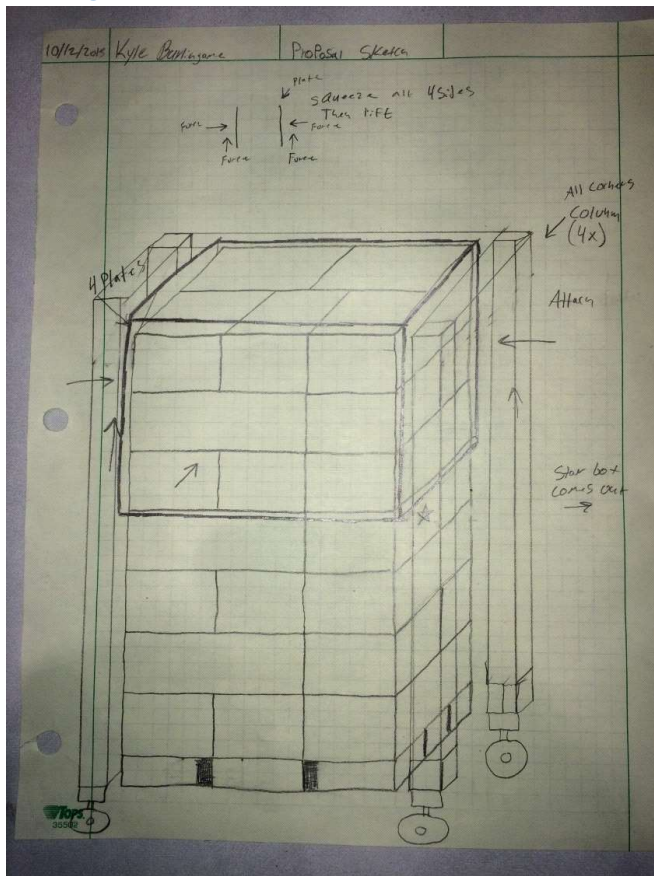 10/12/2015 Kyle Proposal Sketch
Plate
squeeze all 4 sides
Then Lift
Force Force
Force Force
All corners
Column
(4x)
4 Plates
Attach
Star box
comes out
TOPS